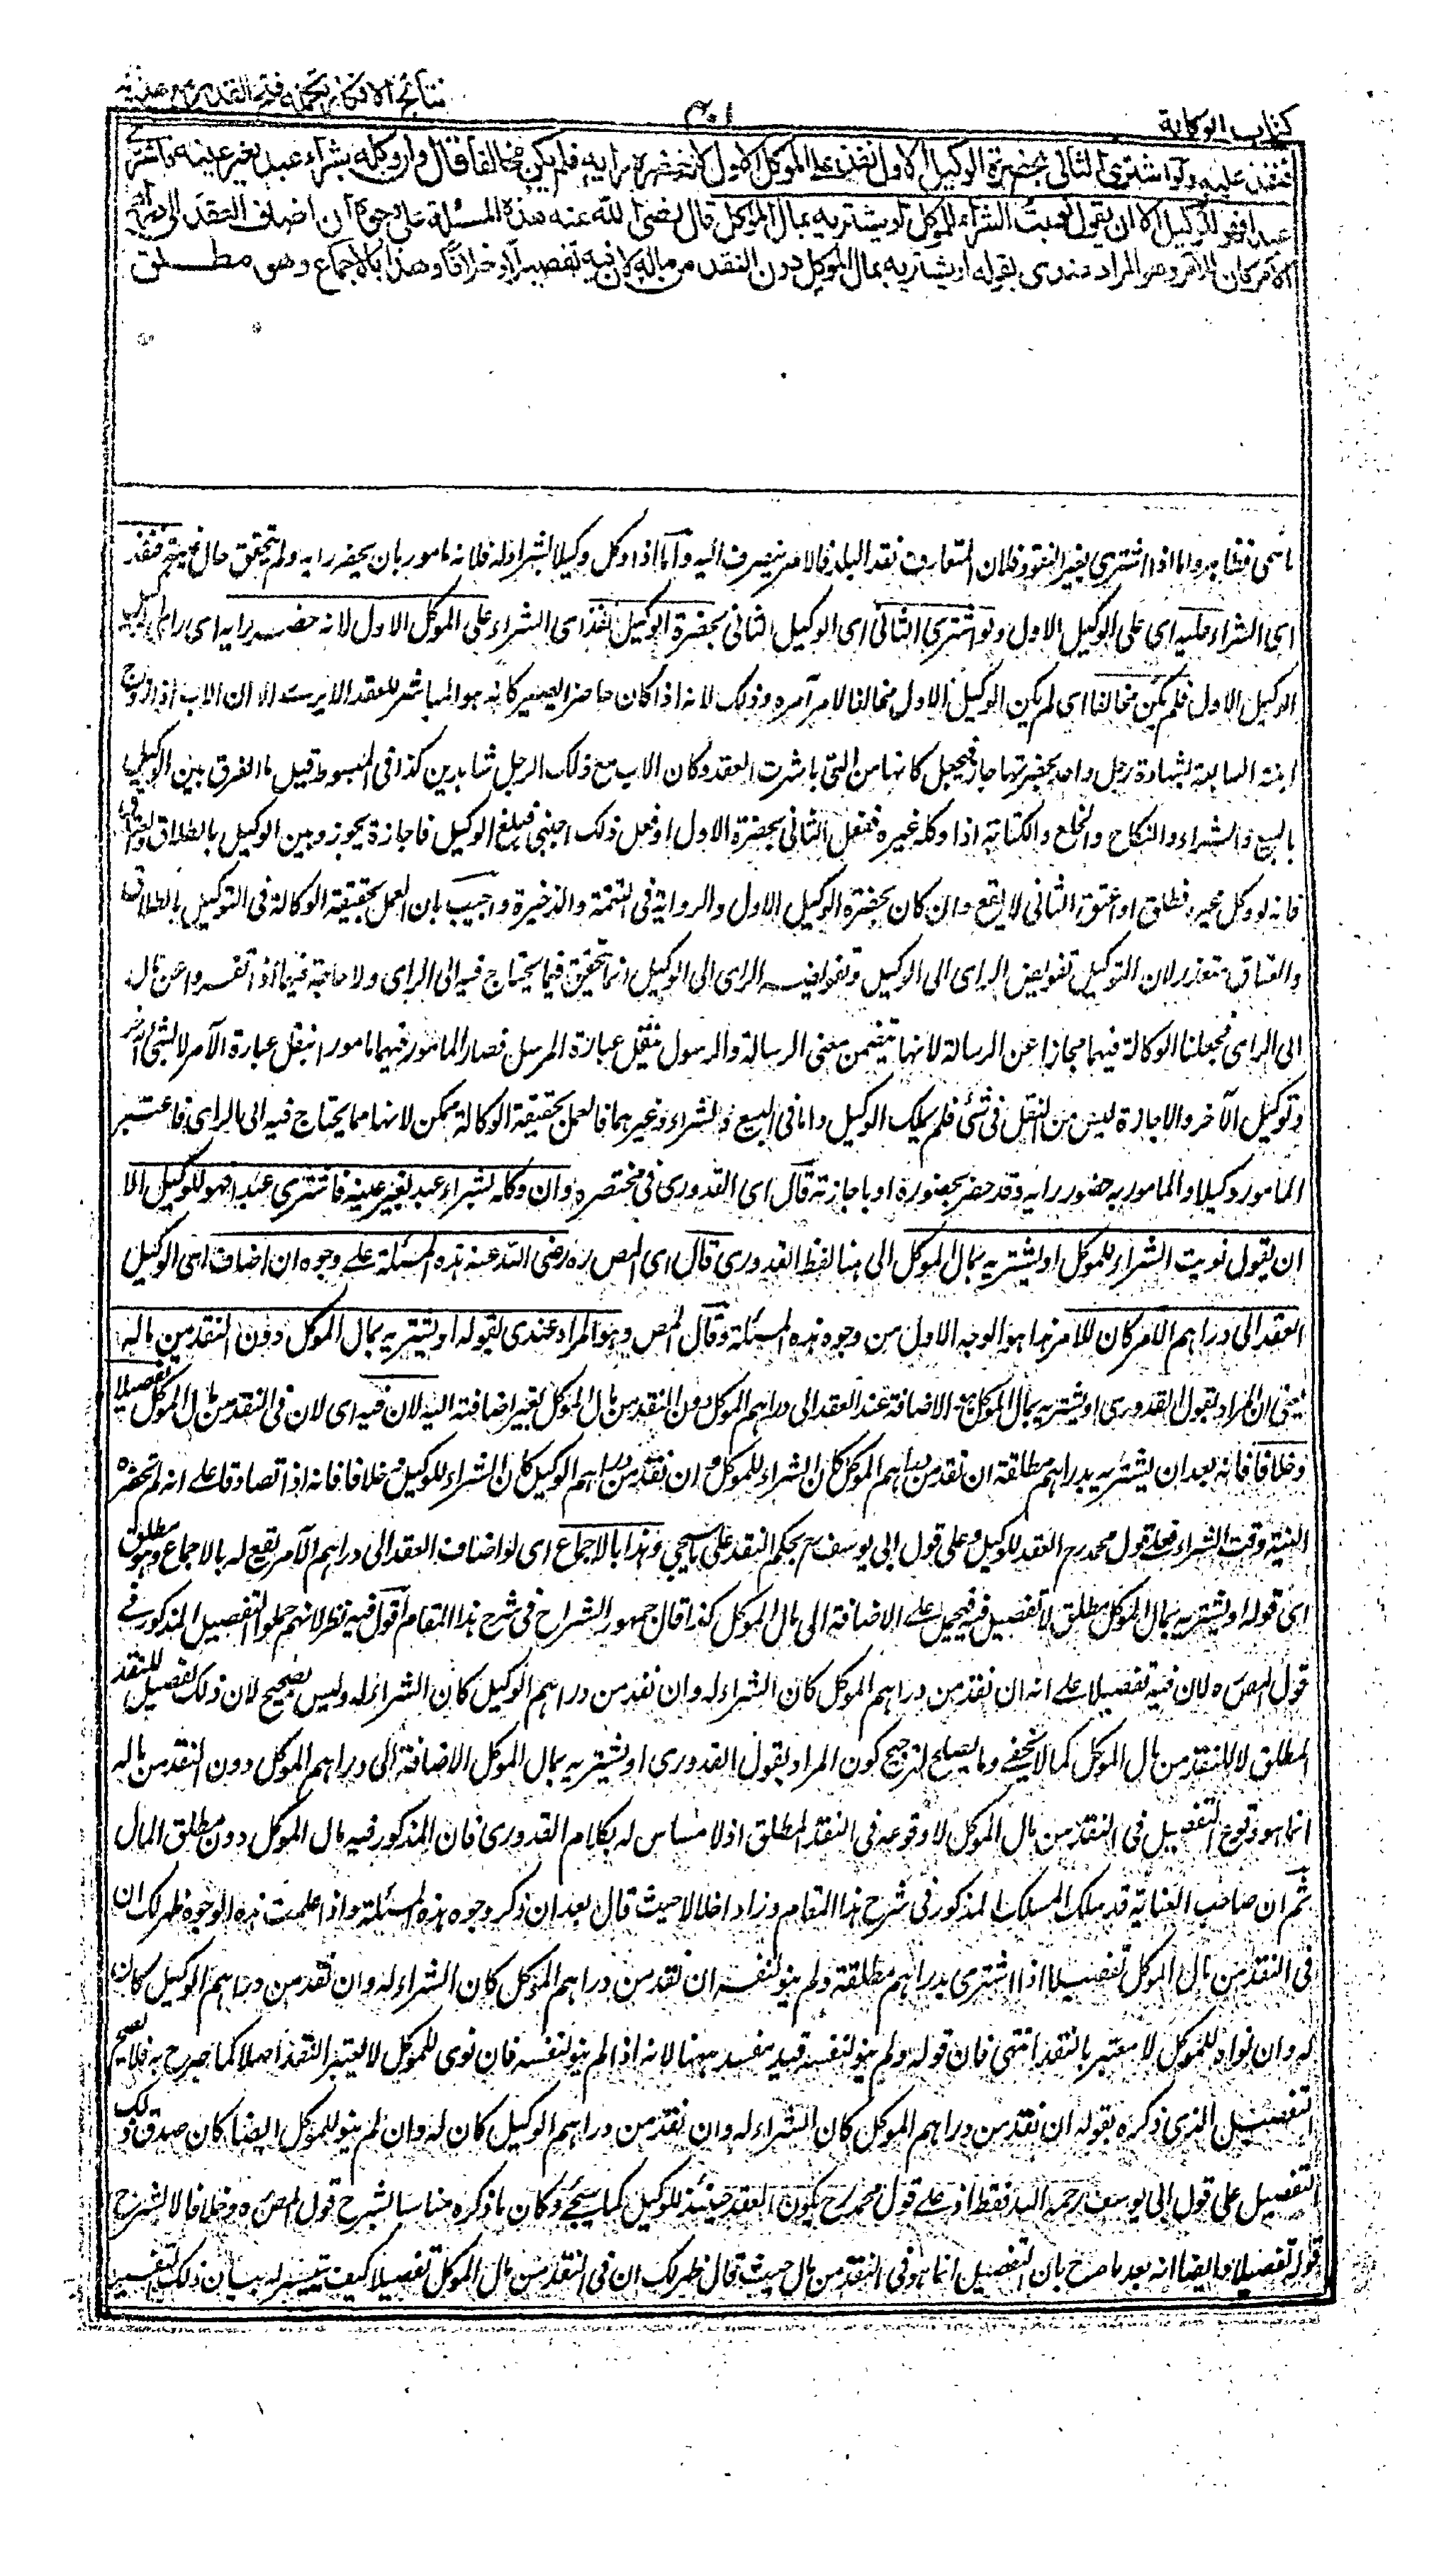 كتاب الوكالة
نتائج الافكار تكملة فتح القدير مع هداية
فينفذ عليه ولو اشترى الثانى بحضرة الوكيل الاول نفذ على الموكل الاول لانه حضره رايه فلم يكن مخالفا قال وان وكله بشراء عبد بغير عينه فاشترى
عبدا فهو للوكيل الا ان يقول نويت الشراء للموكل او يشتريه بمال الموكل قال رضى الله عنه هذه المسئلة على وجوه ان اضاف العقد الى دراهم
الآمر كان للآمر وهو المراد عندى بقوله او يشتريه بمال الموكل دون النقد من ماله لان فيه تفصيلا و خلافا وهذا بالاجماع وهو مطلق
ما سمى فظاهر واما اذا اشترى بغير النقود فلان المتعارف نقد البلد فالامر ينصرف اليه واما اذا وكل وكيلا بشرائه له فلانه مامور بان يحضر رايه ولم يتحقق حال غيبته فينفذ
اى الشراء عليه اى على الوكيل الاول ولو اشترى الثانى اى الوكيل الثانى بحضرة الوكيل نفذ اى الشراء على الموكل الاول لانه حضره رايه اى راى
الوكيل الاول فلم يكن مخالفا اى لم يكن الوكيل الاول مخالفا لامر آمره وذلك لانه اذا كان حاضرا يصير كانه هو المباشر للعقد الا يرى ان الاب اذا زوج
ابنته البالغة بشهادة رجل واحد بحضرتها جاز فيجعل كانها هى التى باشرت العقد وكان الاب مع ذلك الرجل شاهدين كذا فى المبسوط قيل ما الفرق بين الوكيل
بالبيع والشراء والنكاح والخلع والكتابة اذا وكله غيره ففعل الثانى بحضرة الاول او فعل ذلك اجنبى فبلغ الوكيل فاجازه يجوز وبين الوكيل بالطلاق والعتاق
فانه لو وكل غيره فطلق او اعتق الثانى لا يقع وان كان بحضرة الوكيل الاول والرواية فى التتمة والذخيرة واجيب بان العمل بحقيقة الوكالة فى التوكيل بالطلاق
والعتاق متعذر لان التوكيل تفويض الراى الى الوكيل وتفويض الراى الى الوكيل انما يتحقق فيما يحتاج فيه الى الراى ولا حاجة فيهما اذا انفردا عن مال
الى الراى فجعلنا الوكالة فيهما مجازا عن الرسالة لانها تتضمن معنى الرسالة والرسول ينقل عبارة المرسل فصار المامور فيهما مامورا بنقل عبارة الآمر لا لشئ آخر
وتوكيل الآخر والاجازة ليس من النقل فى شئ فلم يملك الوكيل واما فى البيع والشراء وغيرهما فالعمل بحقيقة الوكالة ممكن لانها مما يحتاج فيه الى الراى فاعتبر
المامور وكيلا والمامور به حضور رايه وقد حضر بحضوره او باجازته قال اى القدورى فى مختصره وان وكله بشراء عبد بغير عينه فاشترى عبدا فهو للوكيل الا
ان يقول نويت الشراء للموكل او يشتريه بمال الموكل الى هنا لفظ القدورى قال اى المص ره رضى الله عنه هذه المسئلة على وجوه ان اضاف اى الوكيل
العقد الى دراهم الامر كان للامر هذا هو الوجه الاول من وجوه هذه المسئلة وقال المص وهو المراد عندى بقوله او يشتريه بمال الموكل دون النقد من ماله
يعنى ان المراد بقول القدورى او يشتريه بمال الموكل هو الاضافة عند العقد الى دراهم الموكل دون النقد من مال الموكل بغير اضافته اليه لان فيه اى لان فى النقد من مال الموكل تفصيلا
وخلافا فانه بعد ان يشتريه بدراهم مطلقة ان نقد من دراهم الموكل كان الشراء للموكل وان نقد من دراهم الوكيل كان الشراء للوكيل وخلافا فانه اذا تصادقا على انه لم تحضره
النية وقت الشراء فعلى قول محمد رح العقد للوكيل وعلى قول ابى يوسف رح يحكم النقد على ما سيجئ وهذا بالاجماع اى لو اضاف العقد الى دراهم الآمر يقع له بالاجماع وهو مطلق
اى قوله او يشتريه بمال الموكل مطلق لا تفصيل فيه فيحمل على الاضافة الى مال الموكل كذا قال جمهور الشراح فى شرح هذا المقام اقول فيه نظر لانهم حملوا التفصيل المذكور فى
قول المص ره لان فيه تفصيلا على انه ان نقد من دراهم الموكل كان الشراء له وان نقد من دراهم الوكيل كان الشراء له وليس بصحيح لان ذلك تفصيل للنقد
المطلق لا للنقد من مال الموكل كما لا يخفى وما يصلح لترجيح كون المراد بقول القدورى او يشتريه بمال الموكل الاضافة الى دراهم الموكل دون النقد من ماله
انما هو وقوع التفصيل فى النقد من مال الموكل لا وقوعه فى النقد المطلق اذ لا مساس له بكلام القدورى فان المذكور فيه مال الموكل دون مطلق المال
ثم ان صاحب العناية قد سلك المسلك المذكور فى شرح هذا المقام وزاد اخلالا حيث قال بعد ان ذكر وجوه هذه المسئلة واذا علمت هذه الوجوه ظهر لك ان
فى النقد من مال الموكل تفصيلا اذا اشترى بدراهم مطلقة ولم ينو لنفسه ان نقد من دراهم الموكل كان الشراء له وان نقد من دراهم الوكيل كان
له وان نواه للموكل لا معتبر بالنقد انتهى فان قوله ولم ينو لنفسه قيد مفسد ههنا لانه اذا لم ينو لنفسه فان نوى للموكل لا يعتبر النقد اصلا كما صرح به فلا يصح
التفصيل الذى ذكره بقوله ان نقد من دراهم الموكل كان الشراء له وان نقد من دراهم الوكيل كان له وان لم ينو للموكل ايضا كان صدق ذلك
التفصيل على قول ابى يوسف رحمه الله فقط اذ على قول محمد رح يكون العقد حينئذ للوكيل كما سيجئ وكان ما ذكره مناسبا لشرح قول المص ره وخلافا لا لشرح
قوله تفصيلا وايضا انه بعد ما صرح بان التفصيل انما هو فى النقد من مال حيث قال ظهر لك ان فى النقد من مال الموكل تفصيلا كيف يتيسر له بيان ذلك التفصيل